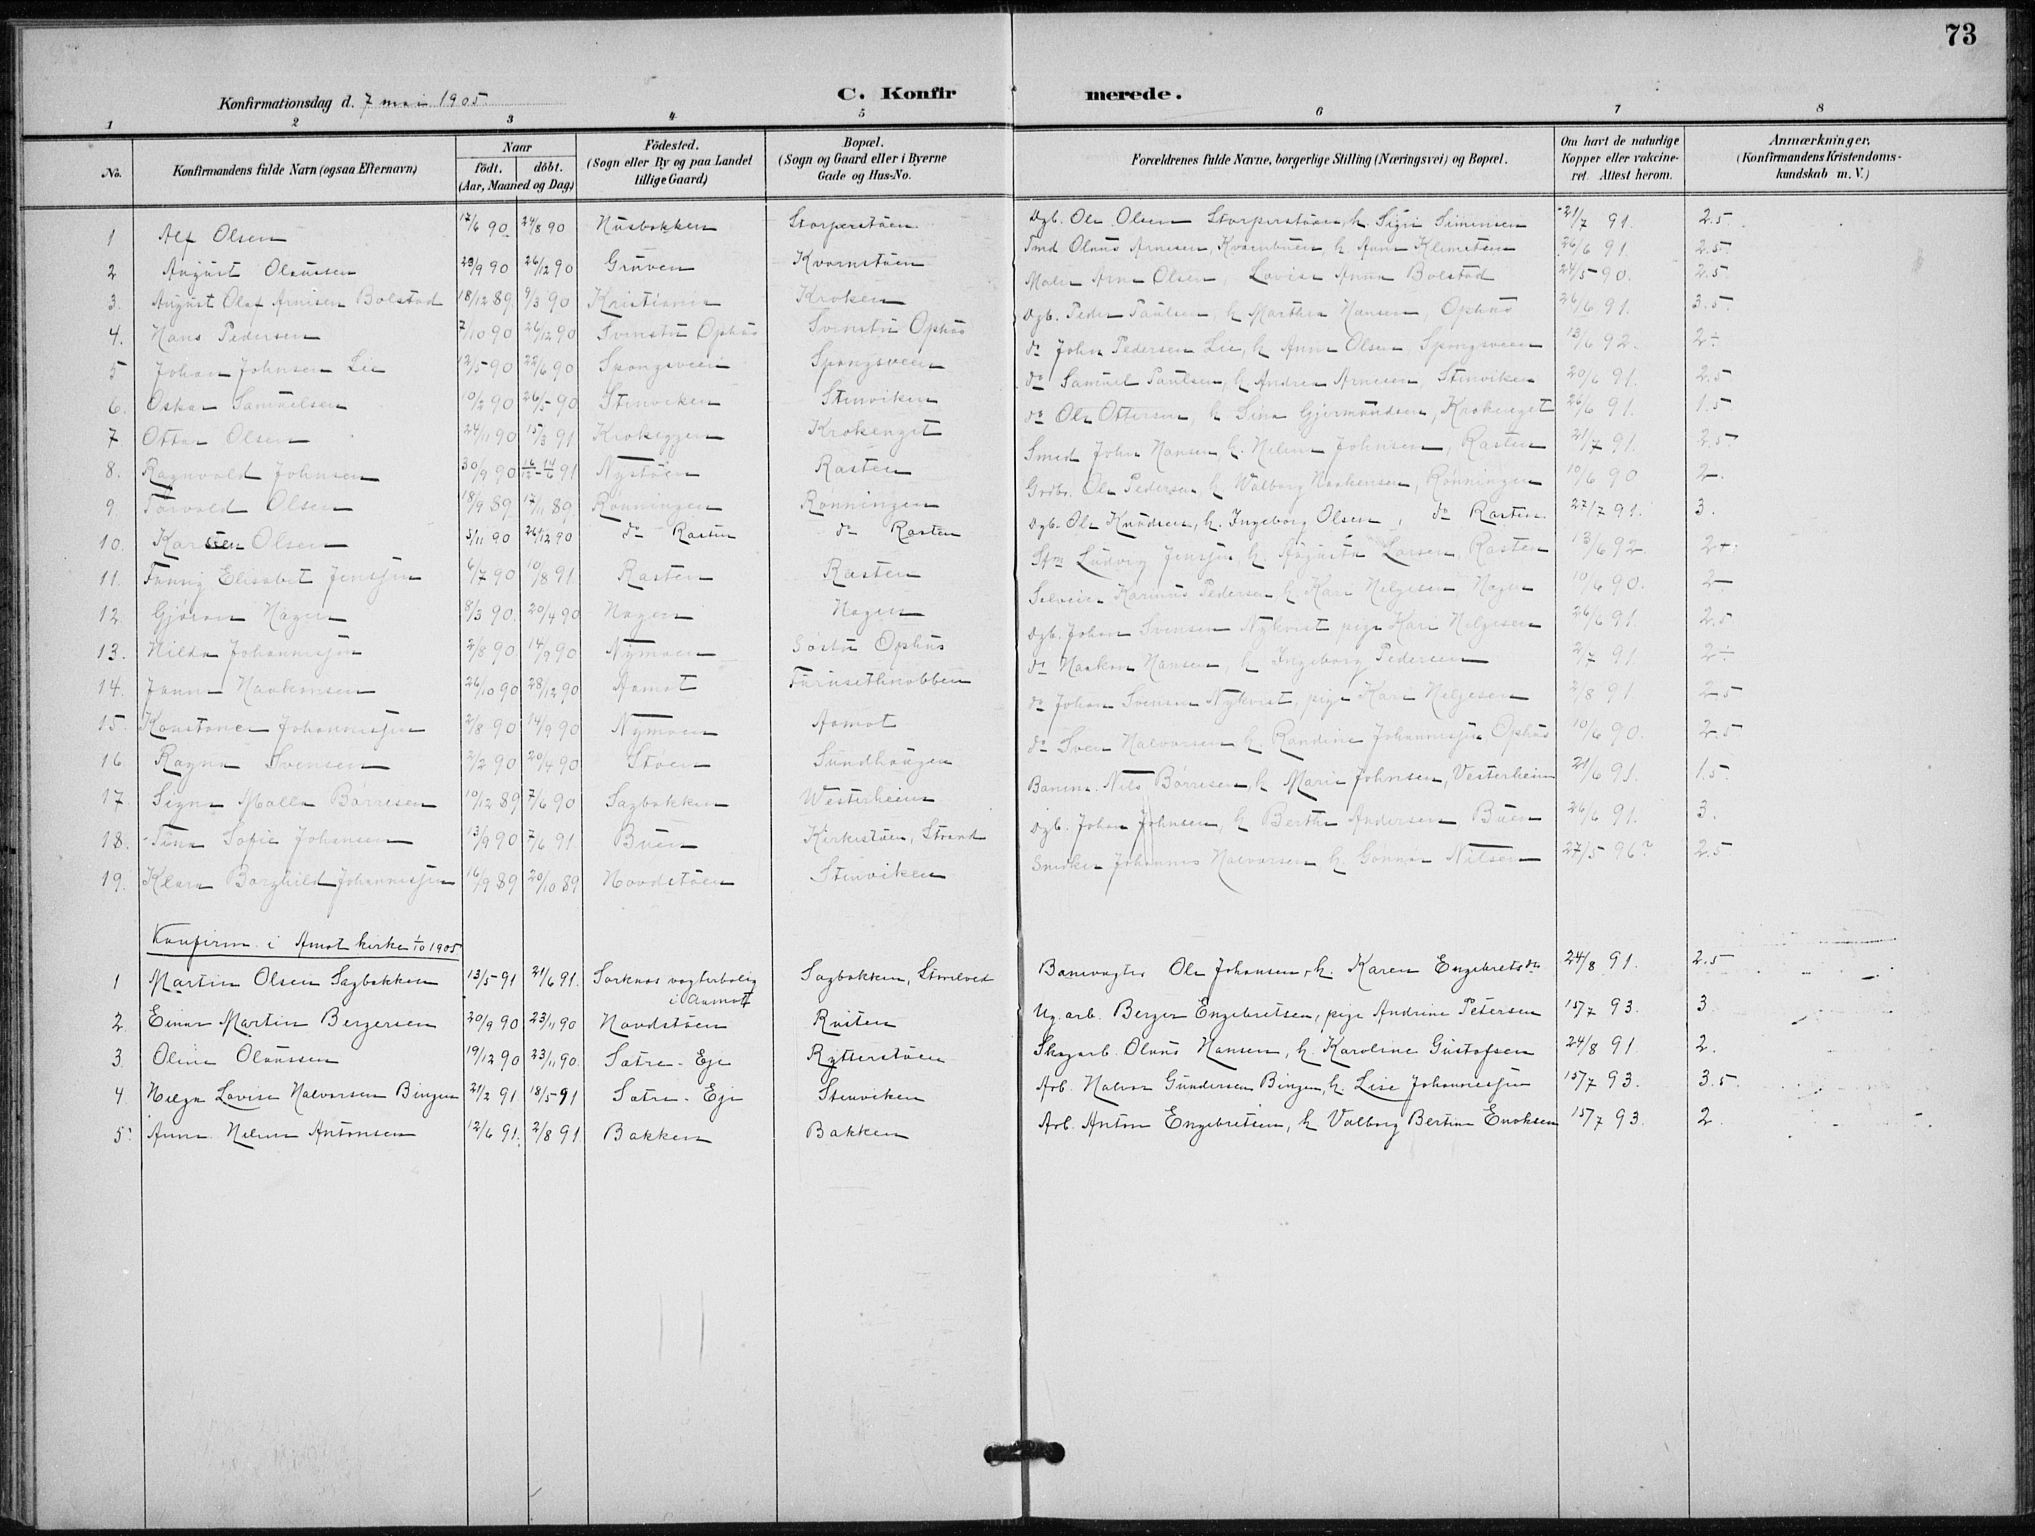 73
Konfirmationsdag d. 7 mai 1905.
C. Konfirmerede.
1 2 3 4 5 6 7 8
No. Konfirmandens fulde Navn (ogsaa Efternavn) Naar født. døbt. (Aar, Maaned og Dag) Fødested. (Sogn eller By og paa Landet tillige Gaard) Bopæl. (Sogn og Gaard eller i Byerne Gade og Hus-No. Forældrenes fulde Navne, borgerlige Stilling (Næringsvei) og Bopæl. Om havt de naturlige Kopper eller vakcineret. Attest herom. Anmærkninger. (Konfirmandens Kristendomskundskab m. V.)
1 Alf Olsen 17/6 90 24/8 90 Husbakken Storperstøen Dgb. Ole Olsen Storperstøen, h. Sigri Simensen 21/7 91. 2.5
2 August Olaussen 29/9 90 26/12 90 Gruven Kvernstøen Tmd Olaus Arnesen, Kvernbuen h. Anne Klemetsen 26/6 91. 2.5
3. August Olaf Arnesen Bolstad 18/12 89 9/3 90 Kristiania Kroken Maler Arne Olsen, Lovise Anna Bolstad 24/5 90. 2.5
4. Hans Pedersen 7/10 90 26/12 90 Svenstu Ophus Svenstu Ophus Dgb. Peder Paulsen, h Marthea Hansen, Ophus 26/6 91. 3.5
5 Johan Johnsen Lie 12/5 90 22/6 90 Spongsveen Spongsveen do John Pedersen Lie, h Anne Olsen, Spongsveen 13/6 92. 2÷
6. Oskar Samuelsen 10/2 90 26/5 90 Stenviken Stenviken do Samuel Paulsen, h Andrea Arnesen, Stenviken 20/6 91. 2.5
7 Ottar Olsen 24/11 90 15/3 91 Krokeggen Krokenget do Ole Ottersen, h. Sina Gjermundsen, Krokenget 26/6 91. 1.5
8. Ragnvald Johnsen 30/9 90 16/12 - 14/6 91 Nystøen Rasten Smed John Hansen h. Helene Johnsen, Rasten 21/7 91. 2.5
9. Torvald Olsen 18/9 89 17/11 89 Rønningen Rønningen Grdbr. Ole Pedersen, h Valborg Haakensen, Rønningen 10/6 90 2.
10. Karsten Olsen 5/11 90 26/12 90 do Rasten do Rasten Dgb. Ole Knudsen, h. Ingeborg Olsen, do Rasten 27/7 91. 3.
11. Fanny Elisabet Jenssen 6/7 90 10/8 91. Rasten Rasten Stm Ludvig Jenssen, h. Augusta Larsen, Rasten 13/6 92 2+.
12. Gjøran Hagen 8/3 90. 20/4 90 Hagen Hagen Selveier Karinus Pedersen, h Kari Helgesen, Hagen 10/6 90. 2
13. Hilda Johannessen 2/8 90 14/9 90 Nymoen Søstu Ophus Dgb. Johan Svensen Nykvist pige Kari Helgesen 26/6 91. 2.5
14. Janna Haakensen 26/10 90 28/12 90 Aamot Furusethnobben do Haakon Hansen, h Ingeborg Pedersen 2/7 91. 2÷
15. Konstance Johannessen 2/8 90 14/9 90 Nymoen Aamot do Johan Svensen Nykvist, pige Kari Helgesen 2/8 91. 2.5
16 Ragna Svensen 2/2 90 20/4 90 Støen Sundhaugen do Sven Halvorsen h. Randine Johannessen, Ophus 10/6 90. 2.5
17 Signe Malla Børresen 10/12 89 7/6 90 Sagbakken Westerheim Banem. Nils Børresen, h Marie Johnsen, Vesterheim 21/6 91. 1.5.
18. Tina Sofie Johansen 13/9 90 7/6 91 Buen Kirkestøen, Strand Dgb. Johan Johnsen, h Berthe Andersen, Buen 26/6 91. 3.
19. Klara Borghild Johannessen 16/9 89 20/10 89 Hovdstøen Stenviken Snedker Johannes Halvorsen h. Gunnor Nilsen 27/5 96? 2.5
Konfirm. i Amot kirke 1/10 1905
1 Martin Olsen Sagbakken 13/5 91 21/6 91. Sorknes vogterbolig i Aamot Sagbakken, Storelved Banevogter Ole Johansen, h. Karen Engebretsdn 24/8 91. 2.5
2 Einar Martin Bergersen 20/9 90 23/11 90 Hovdstøen Kviten Ug. arb. Berger Engebretsen, pige Andrine Petersen 15/7 93. 3
3 Oline Olaussen 19/12 90 23/11 90. Sætre - Eje Rytterstøen Skogarb. Olaus Hansen, h. Karoline Gustafsen 24/8 91. 2.
4 Helga Lovise Halvorsen Bingen 21/2 91 18/5 91 Sætre - Eje Stenviken Arb. Halvor Gundersen Bingen, h. Lise Johannessen 15/7 93. 3.5
5 Anna Helene Antonsen 12/6 91. 2/8 91 Bakken Bakken Arb. Anton Engebretsen, h Valborg Bertine Enoksen 15/7 93. 2